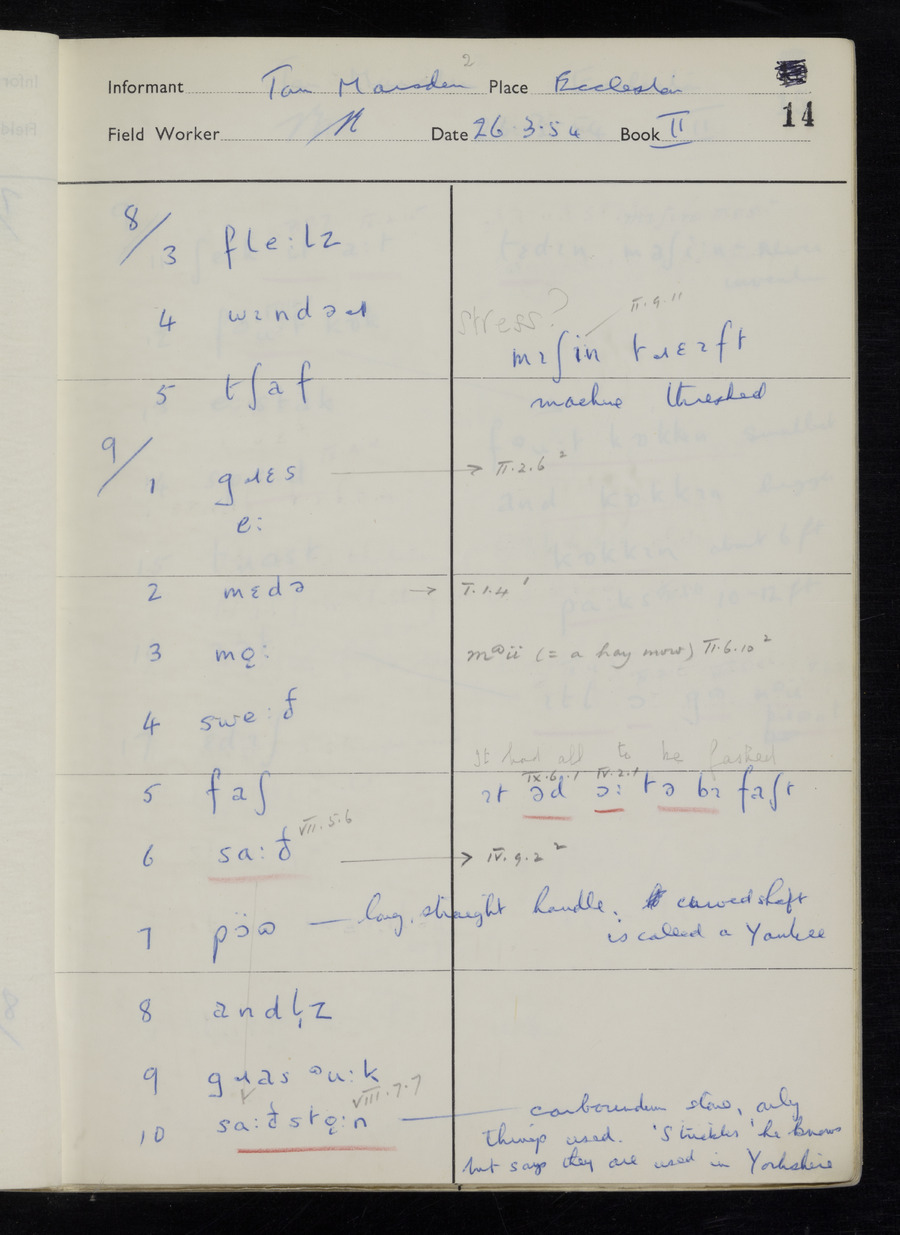 2
Informant Tom Marsden Place Eccleston
14
Field Worker Date 26.3.54 Book II
8/3 fle:lz
4 wɪndəɹ
stress? II.9.11
mɪʃin tɹɛɪft
5 tʃaf
machine threshed
9/1 gɹɛs → II.2.6²
e:
2 mɛdə → I.1.4¹
3 mǫ: (= a hay mow) II.6.10²
4 swe:ð
It had all to be fashed
IX.6.1 IV.2.1
5 faʃ ɪt əd ɔ: tə bɪ faʃt
6 sa:ð VII.5.6 → IV.9.2²
7 — long, straight handle. curved shaft
is called a Yankee
8 andl̩z
9 gɹas
VIII.7.7
10 sa:ðstǫ:n — carborundum stone, only
things used. 'Strickles' he knows
but says they are used in Yorkshire